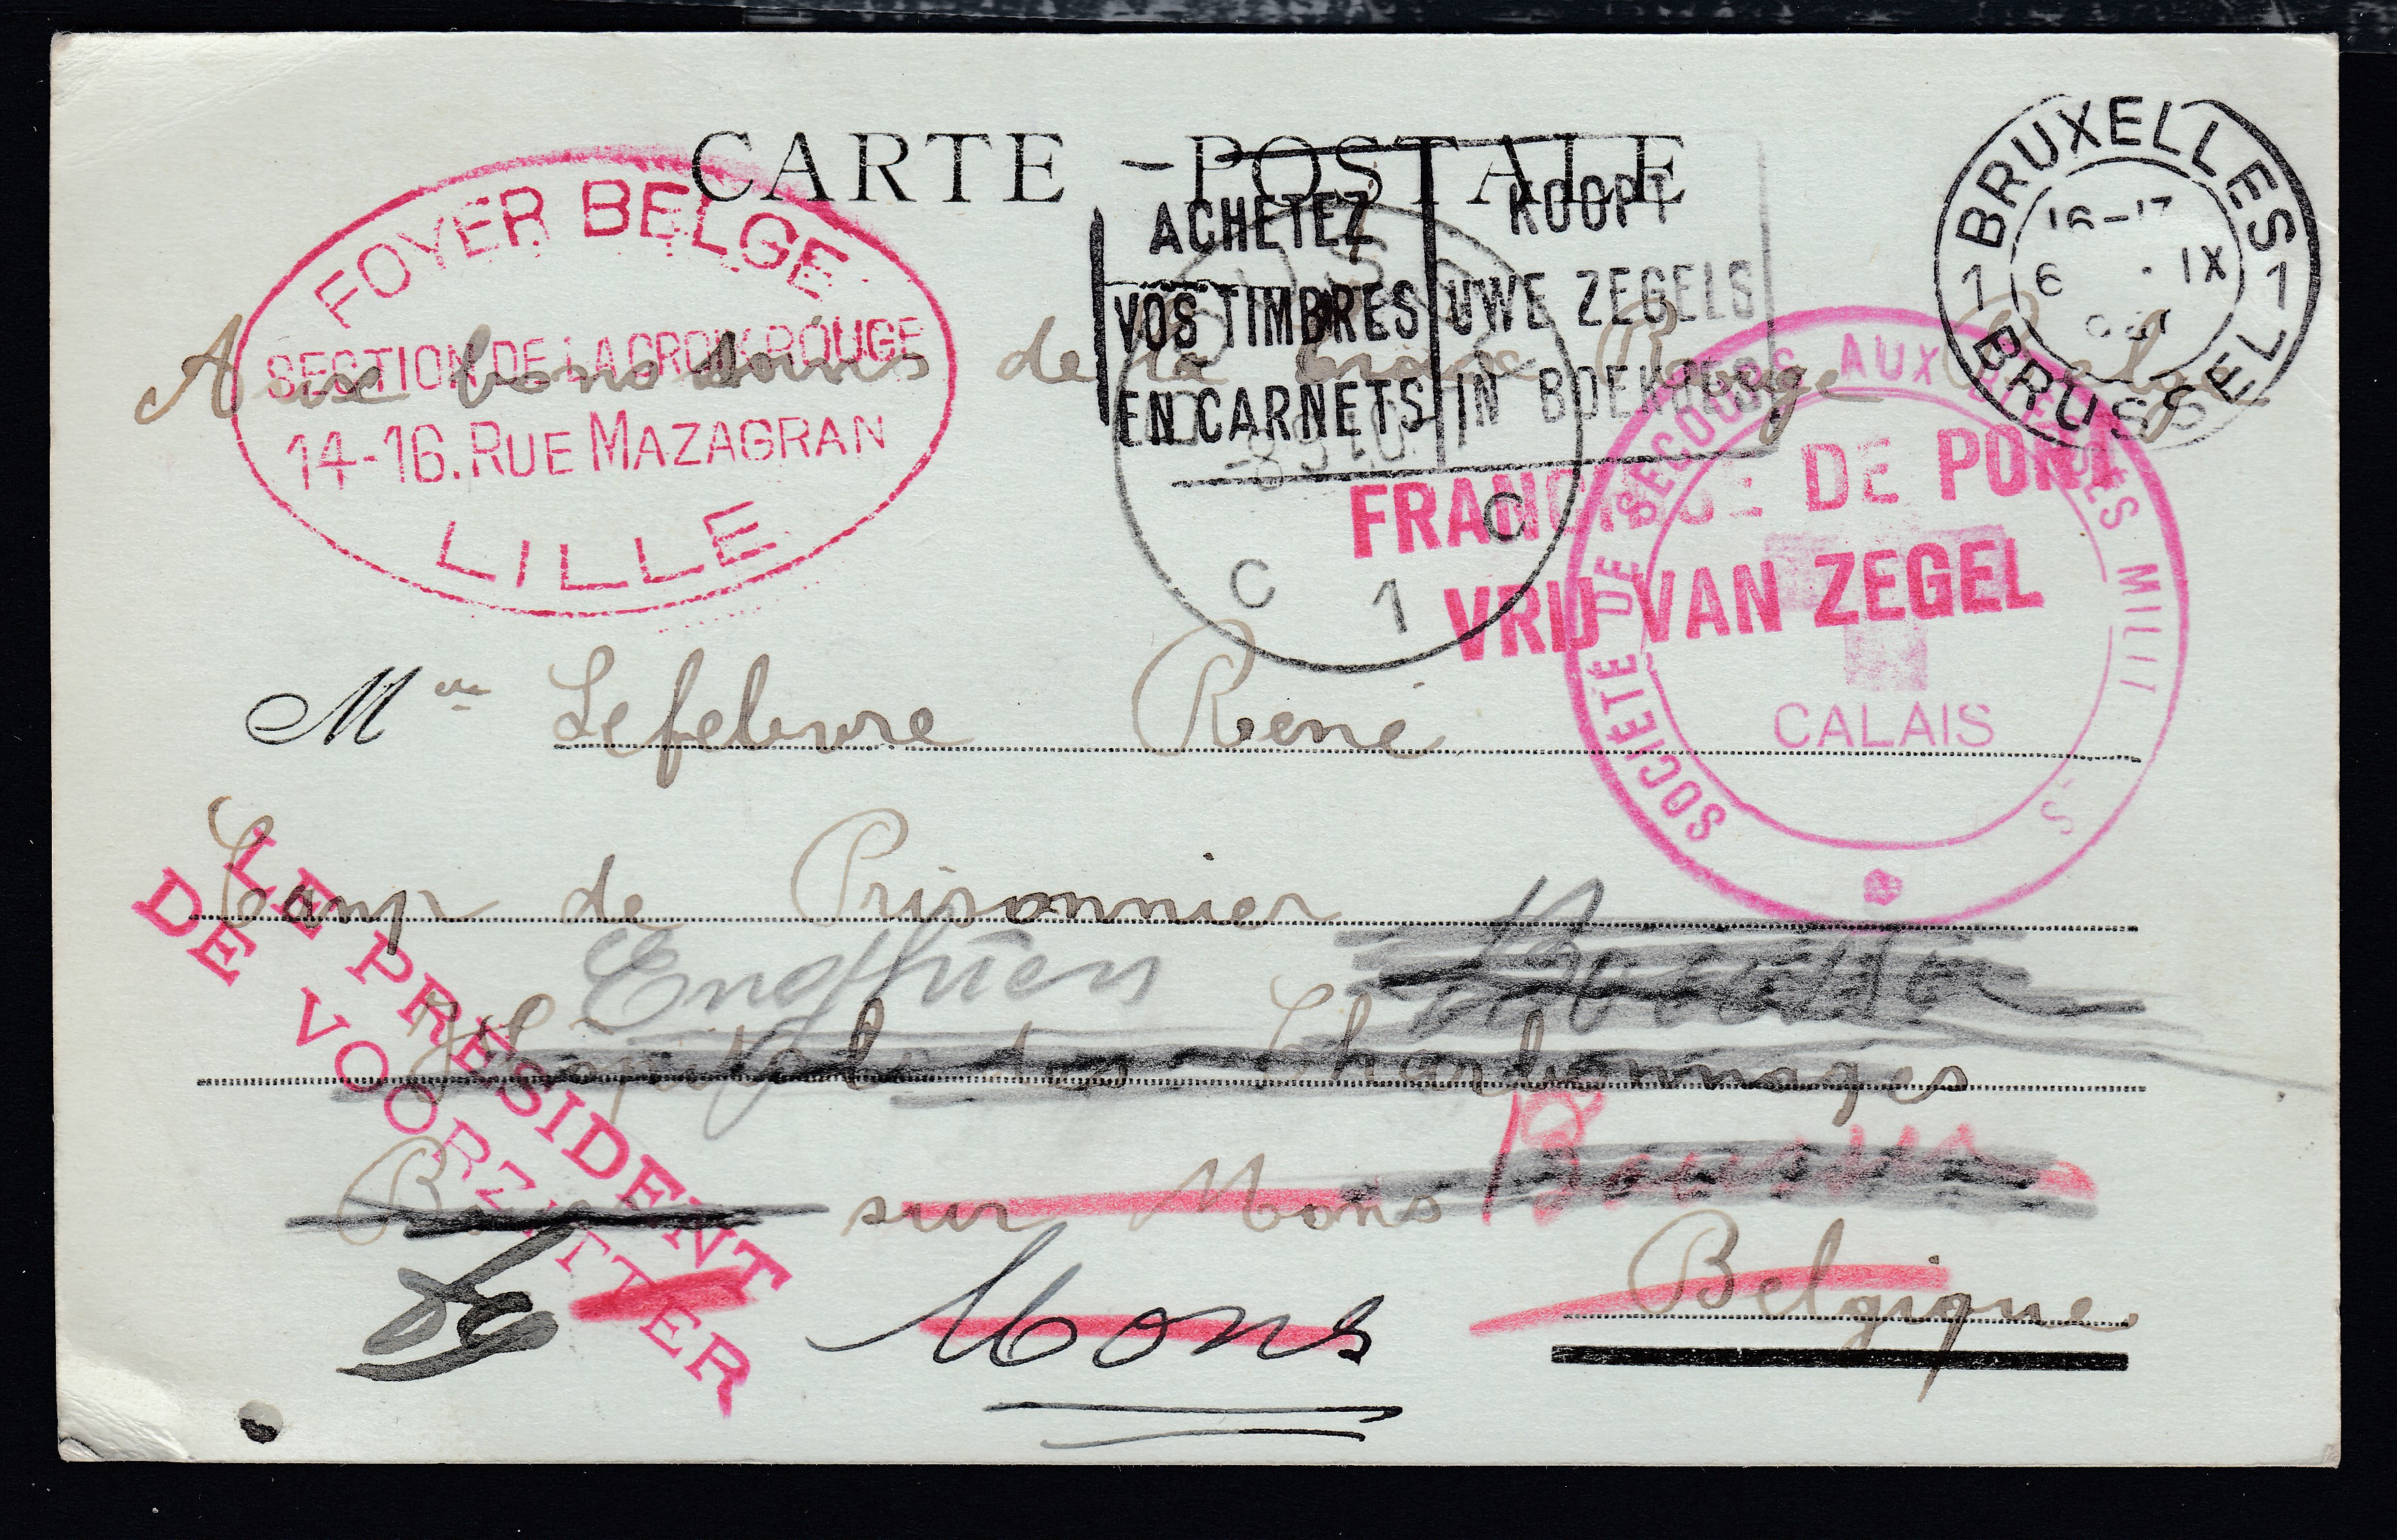 CARTE - POSTALE
FOYER BELGE
SECTION DE LA CROIX ROUGE
14-16. RUE MAZAGRAN
LILLE
ACHETEZ
VOS TIMBRES
EN CARNETS
KOOPT
UWE ZEGELS
IN BOEKJES
BRUXELLES
16-17
6 IX
1 1
BRUSSEL
-8 9 40
C C
1
Aux bons soins de la Croix Rouge Belge
FRANCHISE DE PORT
VRIJ VAN ZEGEL
SOCIÉTÉ DE SECOURS AUX BLESSÉS MILIT S
CALAIS
M Lefebvre René
Camp de Prisonnier
Enghien
Hopital des Charbonnages
sur Mons
Boussu
Mons
Belgique
LE PRESIDENT
DE VOORZITTER